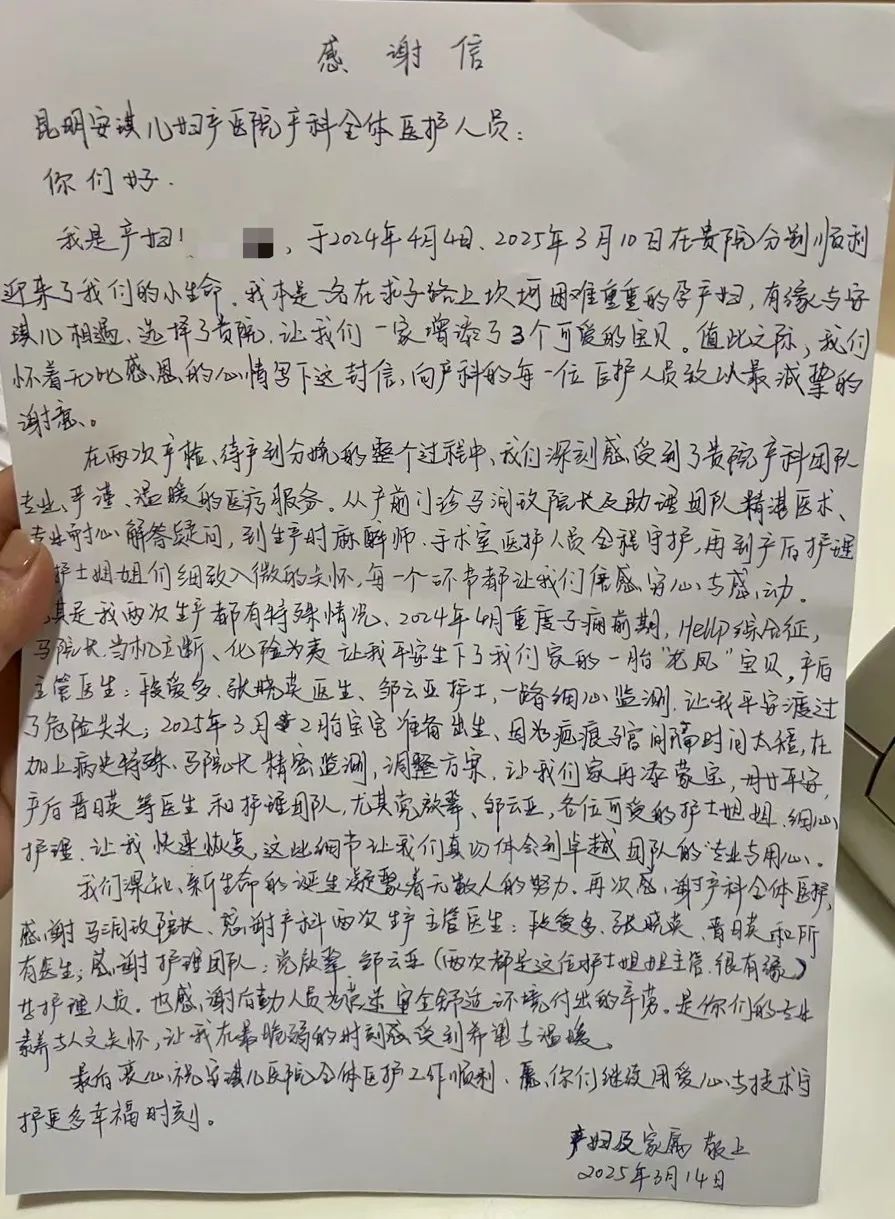 感谢信
昆明安琪儿妇产医院产科全体医护人员：
你们好.
我是产妇，于2024年4月4日、2025年3月10日在贵院分别顺利
迎来了我们的小生命。我本是一名在求子路上坎坷困难重重的孕产妇，有缘与安
琪儿相遇、选择了贵院、让我们一家增添了3个可爱的宝贝。值此之际，我们
怀着无比感恩的心情写下这封信，向产科的每一位医护人员致以最诚挚的
谢意。
在两次产检、待产到分娩的整个过程中、我们深刻感受到了贵院产科团队
专业、严谨、温暖的医疗服务。从产前门诊马润玫院长及助理团队精湛医术、
专业耐心解答疑问，到生产时麻醉师、手术室医护人员全程守护，再到产后护理
护士姐姐们细致入微的关怀，每一个环节都让我们倍感安心与感动。
其是我两次生产都有特殊情况、2024年4月重度子痫前期，Hellp综合征，
马院长当机立断、化险为夷 让我平安生下了我们家的一胎“龙凤”宝贝，产后
主管医生：段爱多、张晓英医生、邹云亚护士，一路细心监测、让我平安渡过
了危险关头；2025年3月2胎宝宝准备出生、因为疤痕子宫间隔时间太短，在
加上病史特殊、马院长精密监测，调整方案、让我们家再添蒙宝，母女平安，
产后晋日英等医生和护理团队，尤其党放苹、邹云亚，各位可爱的护士姐姐、细心
护理、让我快速恢复，这些细节让我们真切体会到卓越团队的“专业与用心”。
我们深知、新生命的诞生凝聚着无数人的努力。再次感谢产科全体医护，
感谢马润玫院长、感谢产科两次生产主管医生：段爱多、张晓英、晋日英和所
有医生；感谢护理团队：党放苹、邹云亚（两次都是这位护士姐姐主管、很有缘）
等护理人员。也感谢后勤人员为营造安全舒适环境付出的辛劳。是你们的专业
素养与人文关怀，让我在最脆弱的时刻感受到希望与温暖。
最后衷心祝安琪儿医院全体医护工作顺利、愿你们继续用爱心与技术守
护更多幸福时刻。
产妇及家属 敬上
2025年3月14日